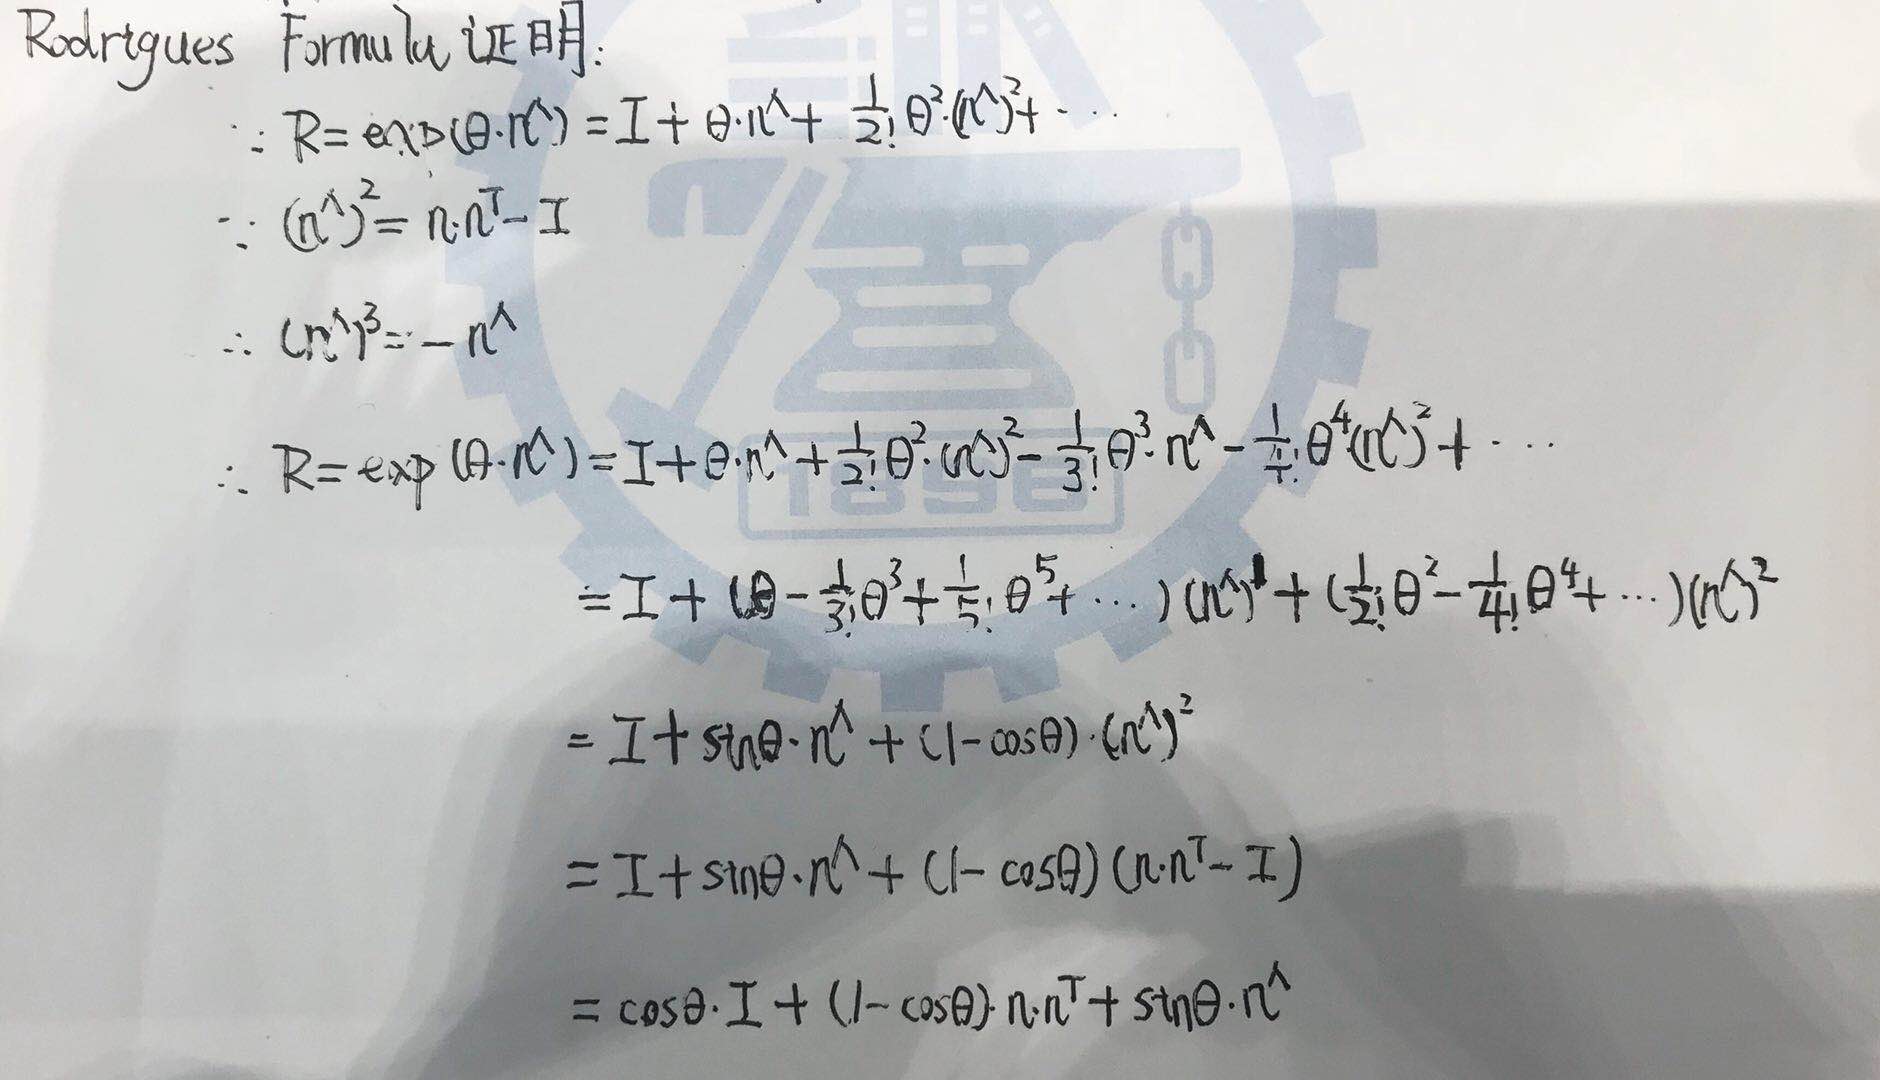 Rodrigues Formula 证明:
∵ R = exp(θ·n^) = I + θ·n^ + 1/2! θ²·(n^)² + ···
∵ (n^)² = n·nᵀ - I
∴ (n^)³ = - n^
∴ R = exp(θ·n^) = I + θ·n^ + 1/2! θ²·(n^)² - 1/3! θ³·n^ - 1/4! θ⁴(n^)² + ···
= I + (θ - 1/3! θ³ + 1/5! θ⁵ + ···)(n^) + (1/2! θ² - 1/4! θ⁴ + ···)(n^)²
= I + sinθ·n^ + (1-cosθ)·(n^)²
= I + sinθ·n^ + (1-cosθ)(n·nᵀ - I)
= cosθ·I + (1-cosθ)·n·nᵀ + sinθ·n^
1896